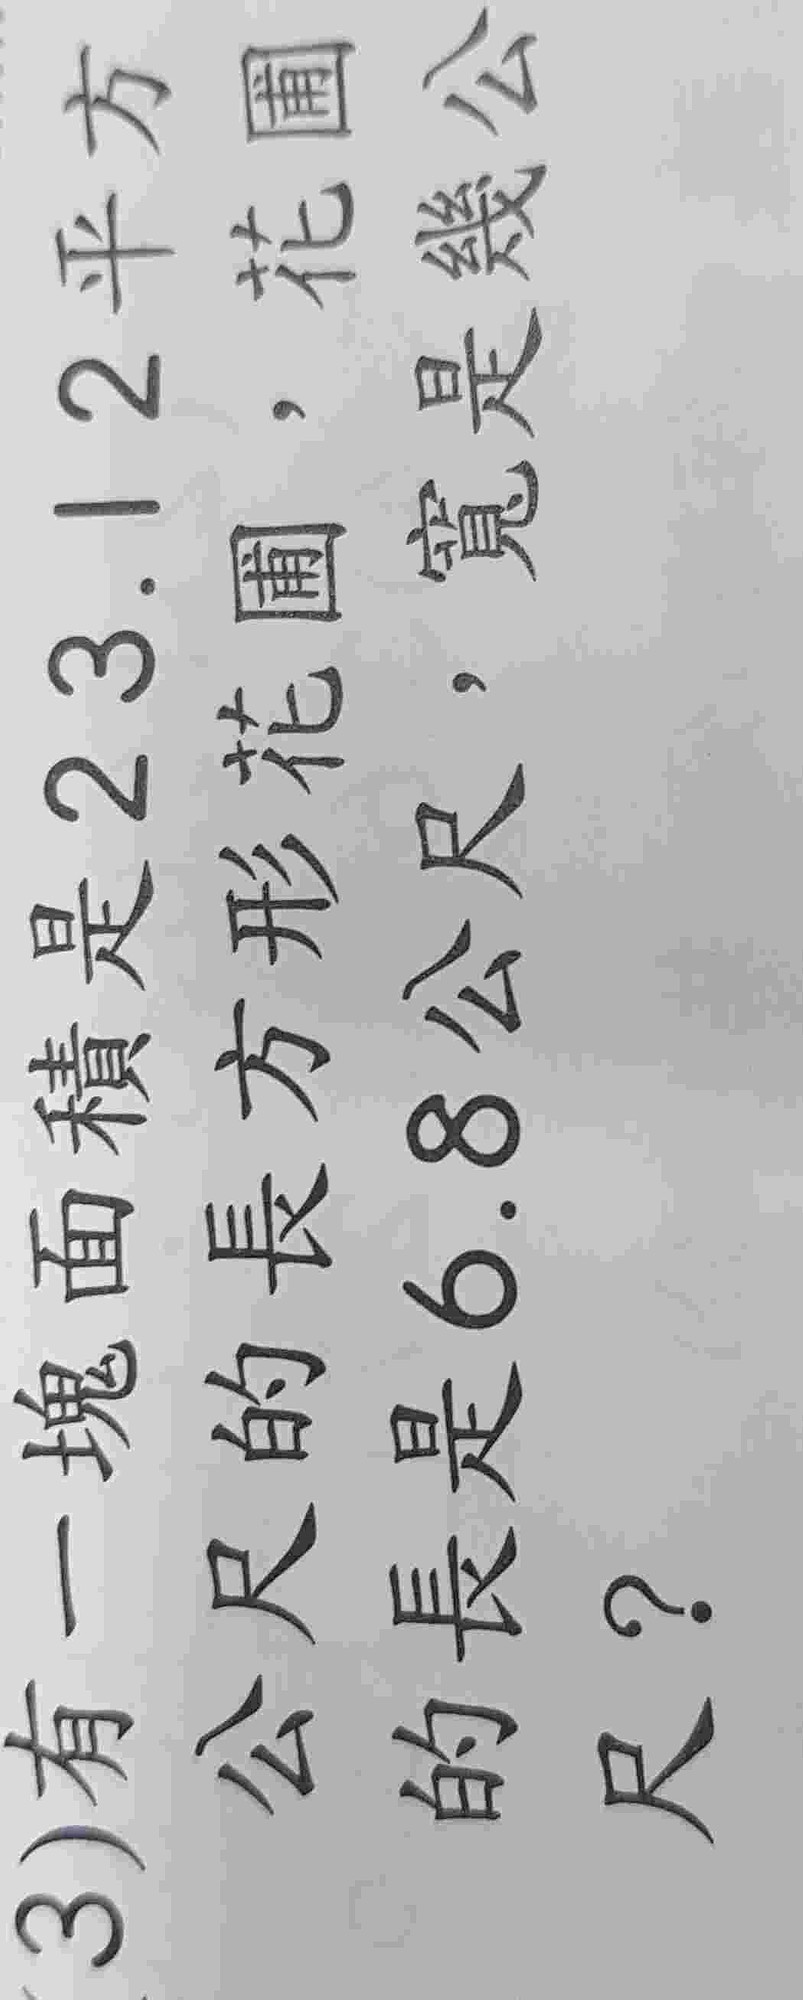 (3)有一塊面積是23.12平方
公尺的長方形花圃，花圃
的長是6.8公尺，寬是幾公
尺？